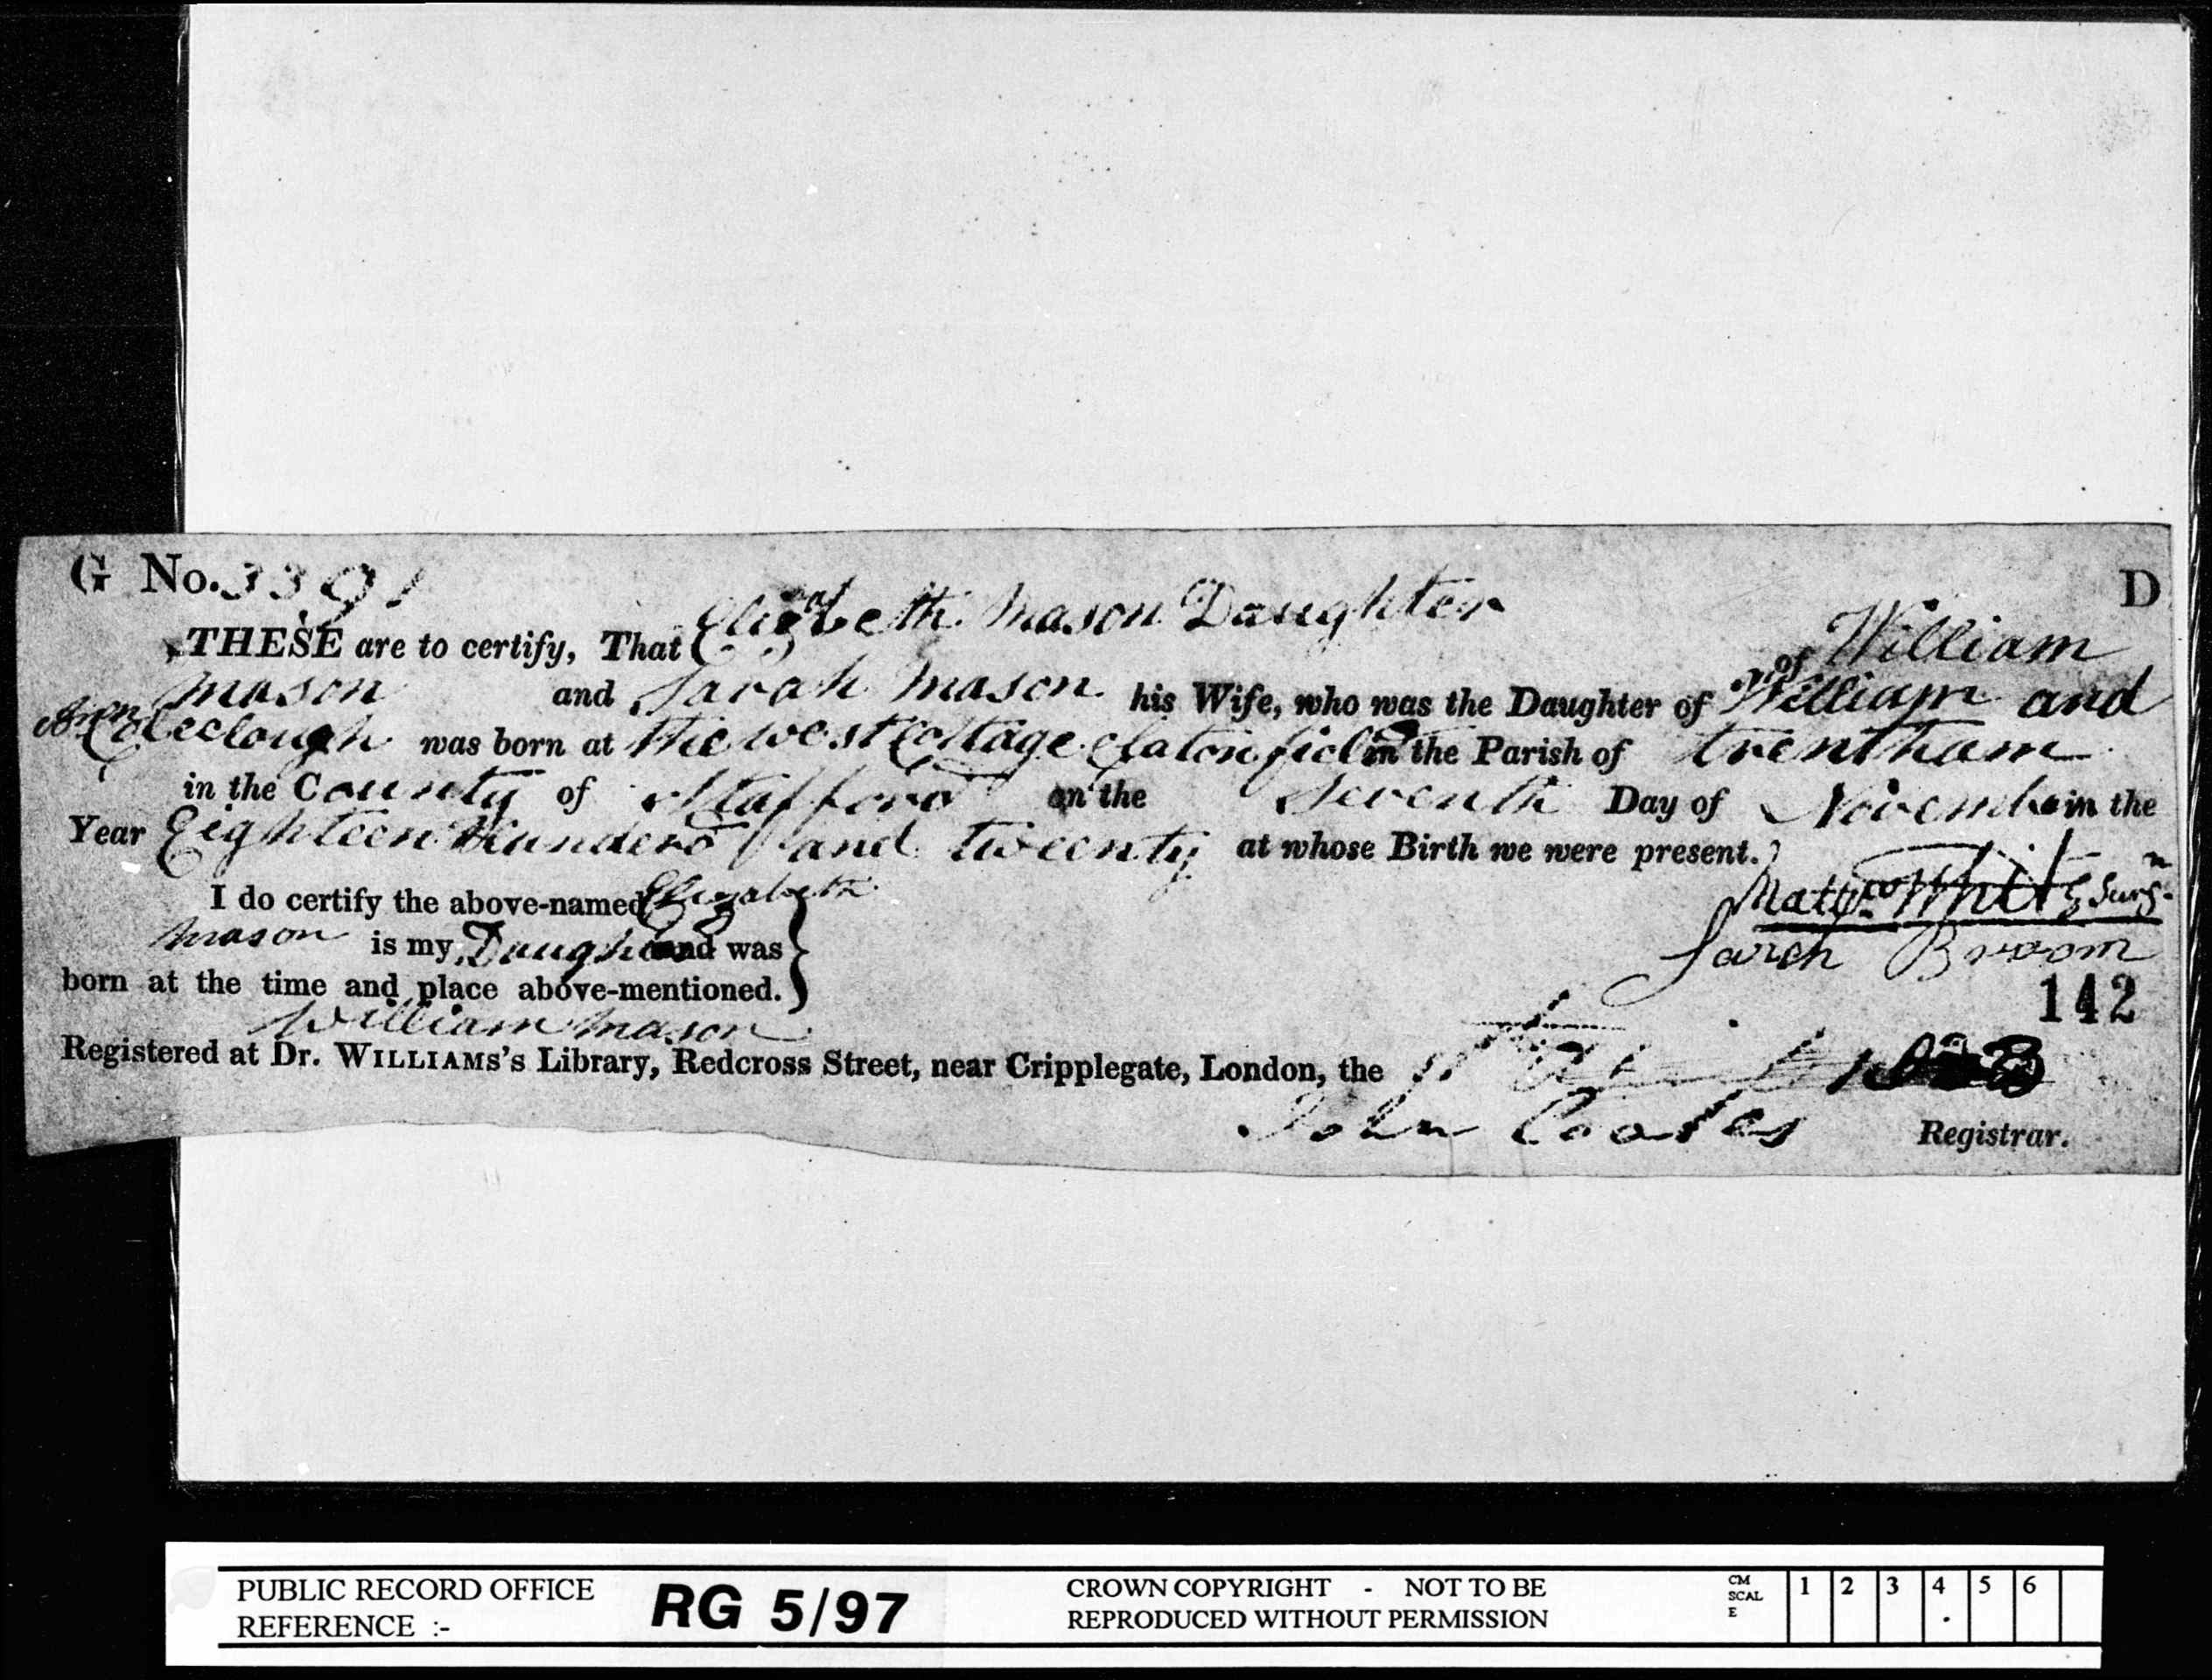 G No. 3391 D
THESE are to certify, That Elizabeth Mason Daughter of William
Mason and Sarah Mason his Wife, who was the Daughter of William and
Ann Coleclough was born at the west Cottage Claton field in the Parish of trentham
in the County of Stafford on the Seventh Day of Novembe in the
Year Eighteen Hunderd and tweenty at whose Birth we were present.
I do certify the above-named Elizabeth
Mason is my Daughter and was
born at the time and place above-mentioned.
William Mason
Mattw Surgn
Sarah Broom
142
Registered at Dr. WILLIAMS's Library, Redcross Street, near Cripplegate, London, the
John Coates Registrar.
PUBLIC RECORD OFFICE
REFERENCE :-
RG 5/97
CROWN COPYRIGHT - NOT TO BE
REPRODUCED WITHOUT PERMISSION
CM
SCAL
E
1 2 3 4 5 6